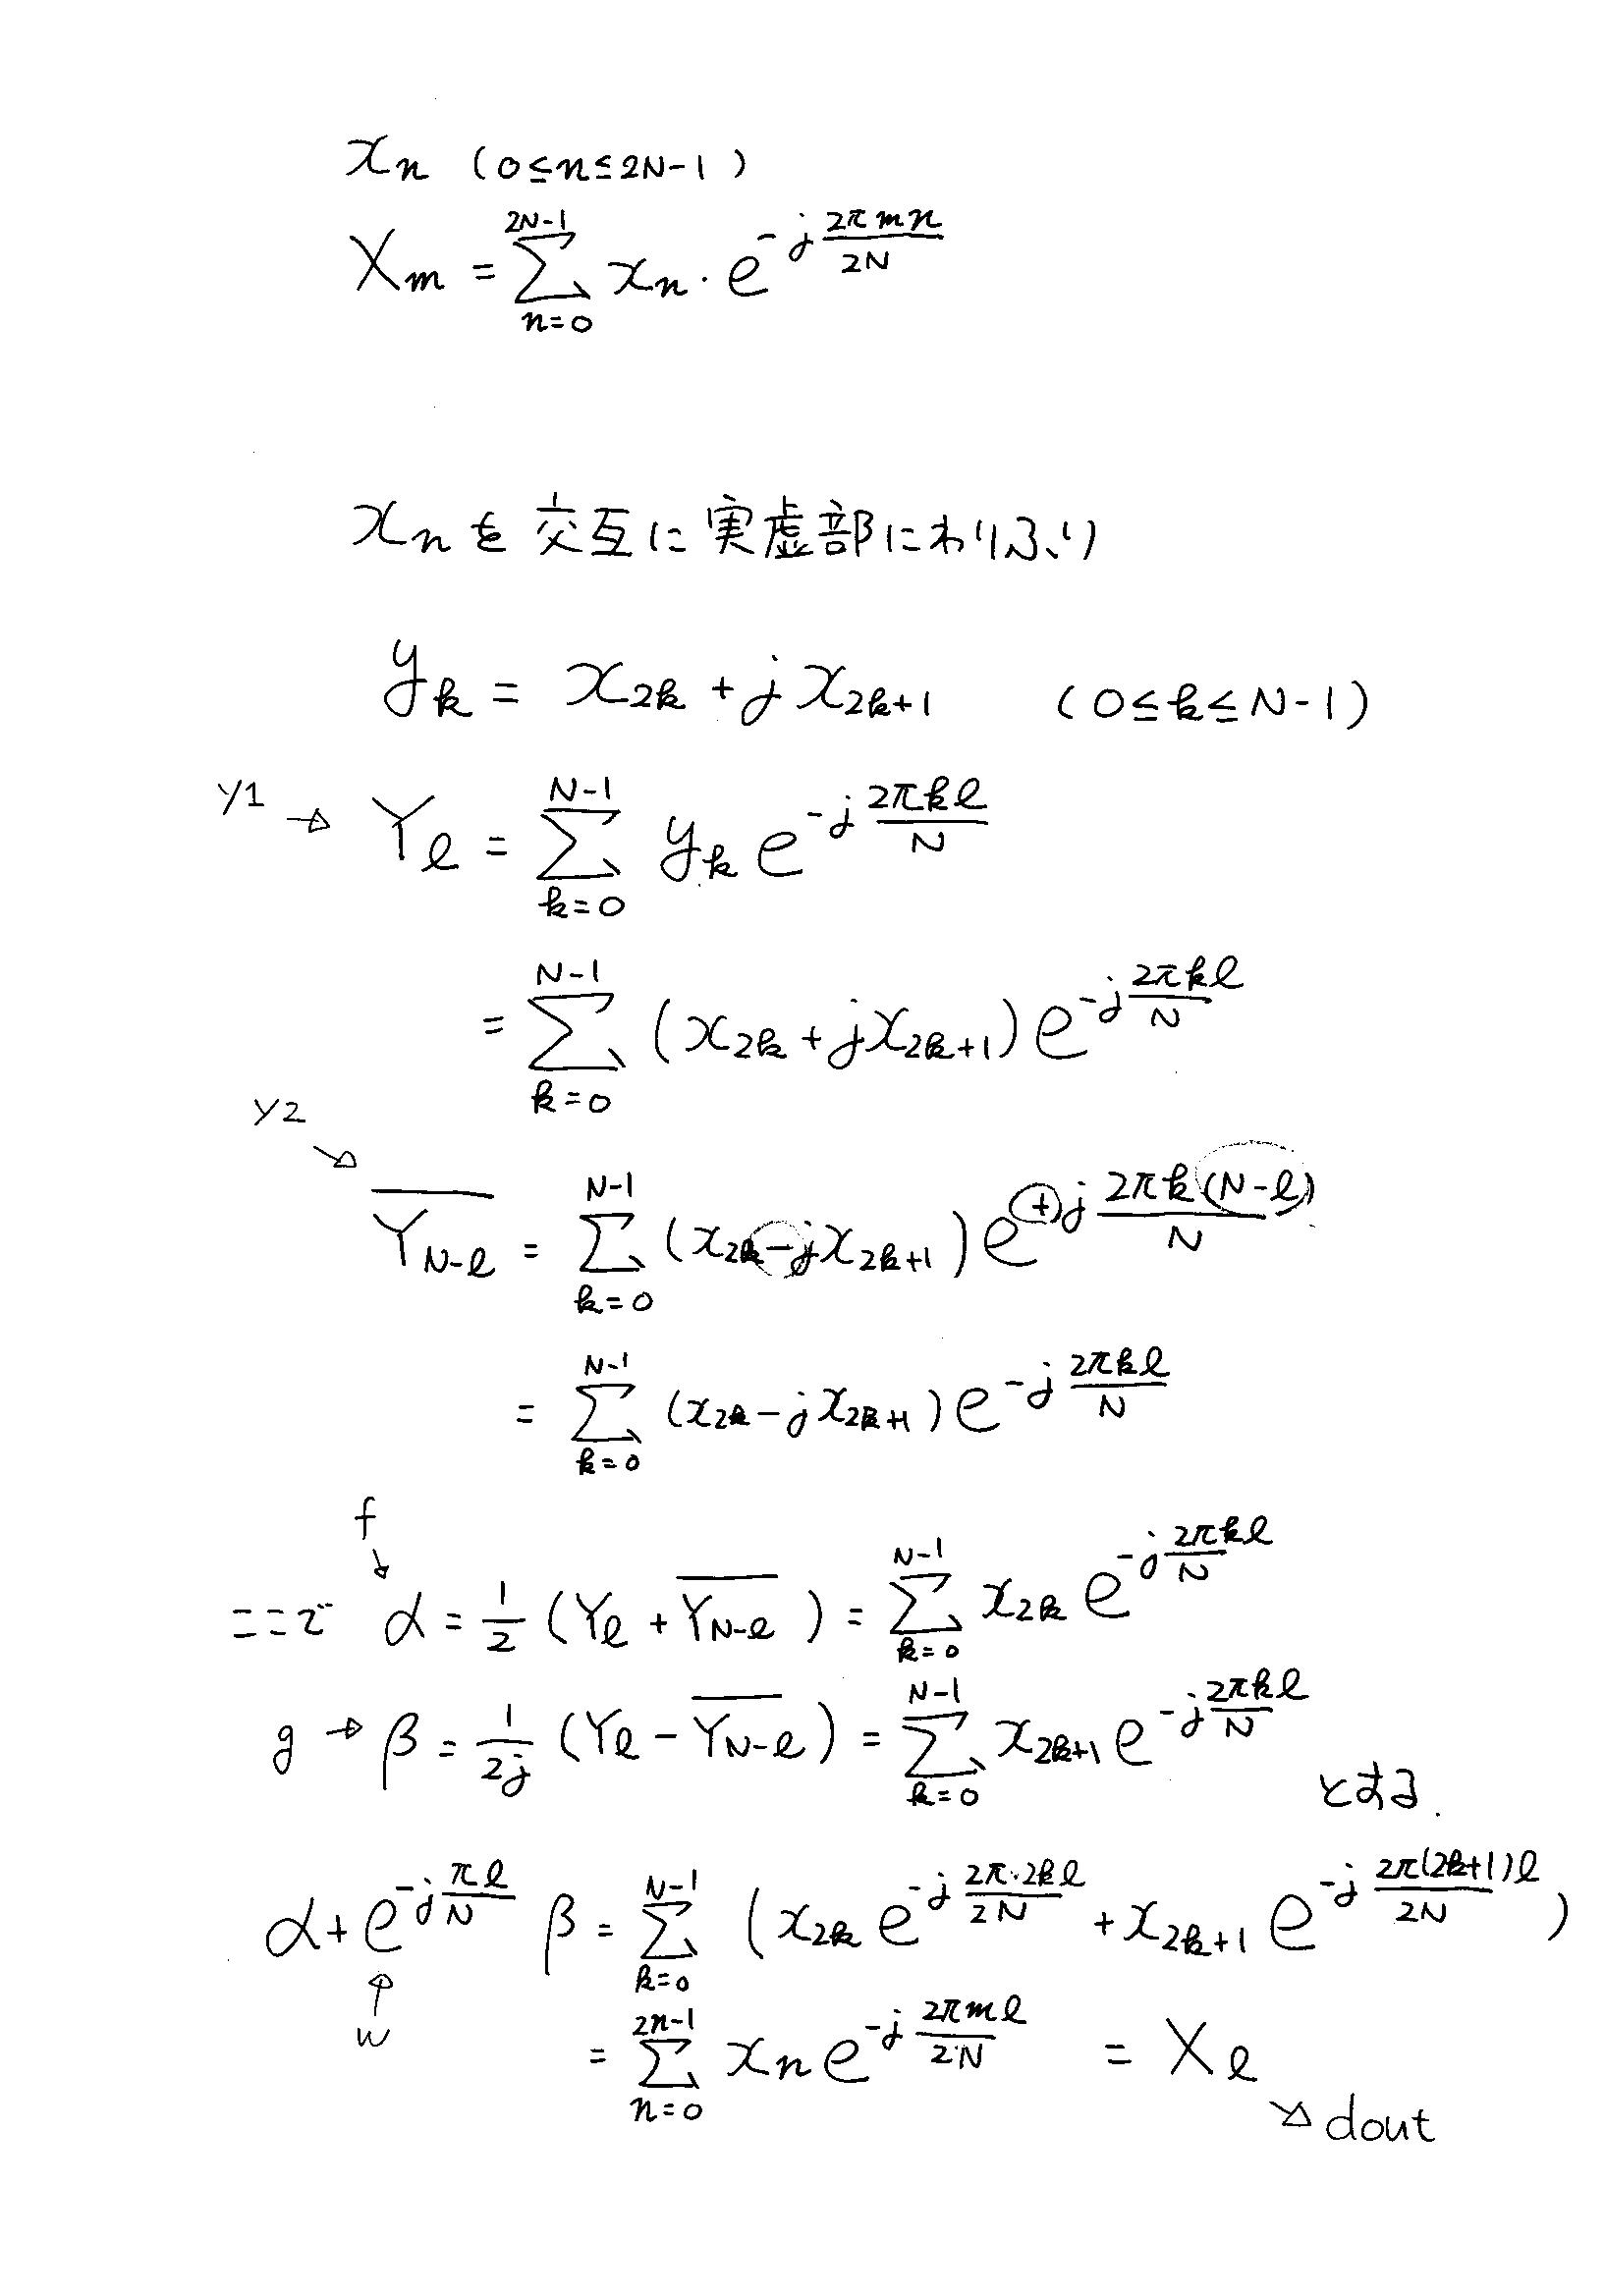 x_n (0≤n≤2N-1)
X_m = Σ_{n=0}^{2N-1} x_n · e^{-j\frac{2πmn}{2N}}
x_n を 交互に実虚部にわりふり
y_k = x_{2k} + j x_{2k+1} (0≤k≤N-1)
y1 → Y_ℓ = Σ_{k=0}^{N-1} y_k e^{-j\frac{2πkℓ}{N}}
= Σ_{k=0}^{N-1} (x_{2k} + j x_{2k+1}) e^{-j\frac{2πkℓ}{N}}
y2 ↘
\overline{Y_{N-ℓ}} = Σ_{k=0}^{N-1} (x_{2k} - j x_{2k+1}) e^{+j\frac{2πk(N-ℓ)}{N}}
= Σ_{k=0}^{N-1} (x_{2k} - j x_{2k+1}) e^{-j\frac{2πkℓ}{N}}
f ↘
ここで α = \frac{1}{2} (Y_ℓ + \overline{Y_{N-ℓ}}) = Σ_{k=0}^{N-1} x_{2k} e^{-j\frac{2πkℓ}{N}}
g → β = \frac{1}{2j} (Y_ℓ - \overline{Y_{N-ℓ}}) = Σ_{k=0}^{N-1} x_{2k+1} e^{-j\frac{2πkℓ}{N}}
とする.
α + e^{-j\frac{πℓ}{N}} β = Σ_{k=0}^{N-1} (x_{2k} e^{-j\frac{2π·2kℓ}{2N}} + x_{2k+1} e^{-j\frac{2π(2k+1)ℓ}{2N}})
↑
w
= Σ_{n=0}^{2n-1} x_n e^{-j\frac{2πmℓ}{2N}} = X_ℓ
↘ dout